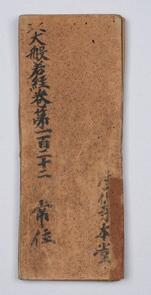 大般若経巻第一百二十二 常住
寺本堂